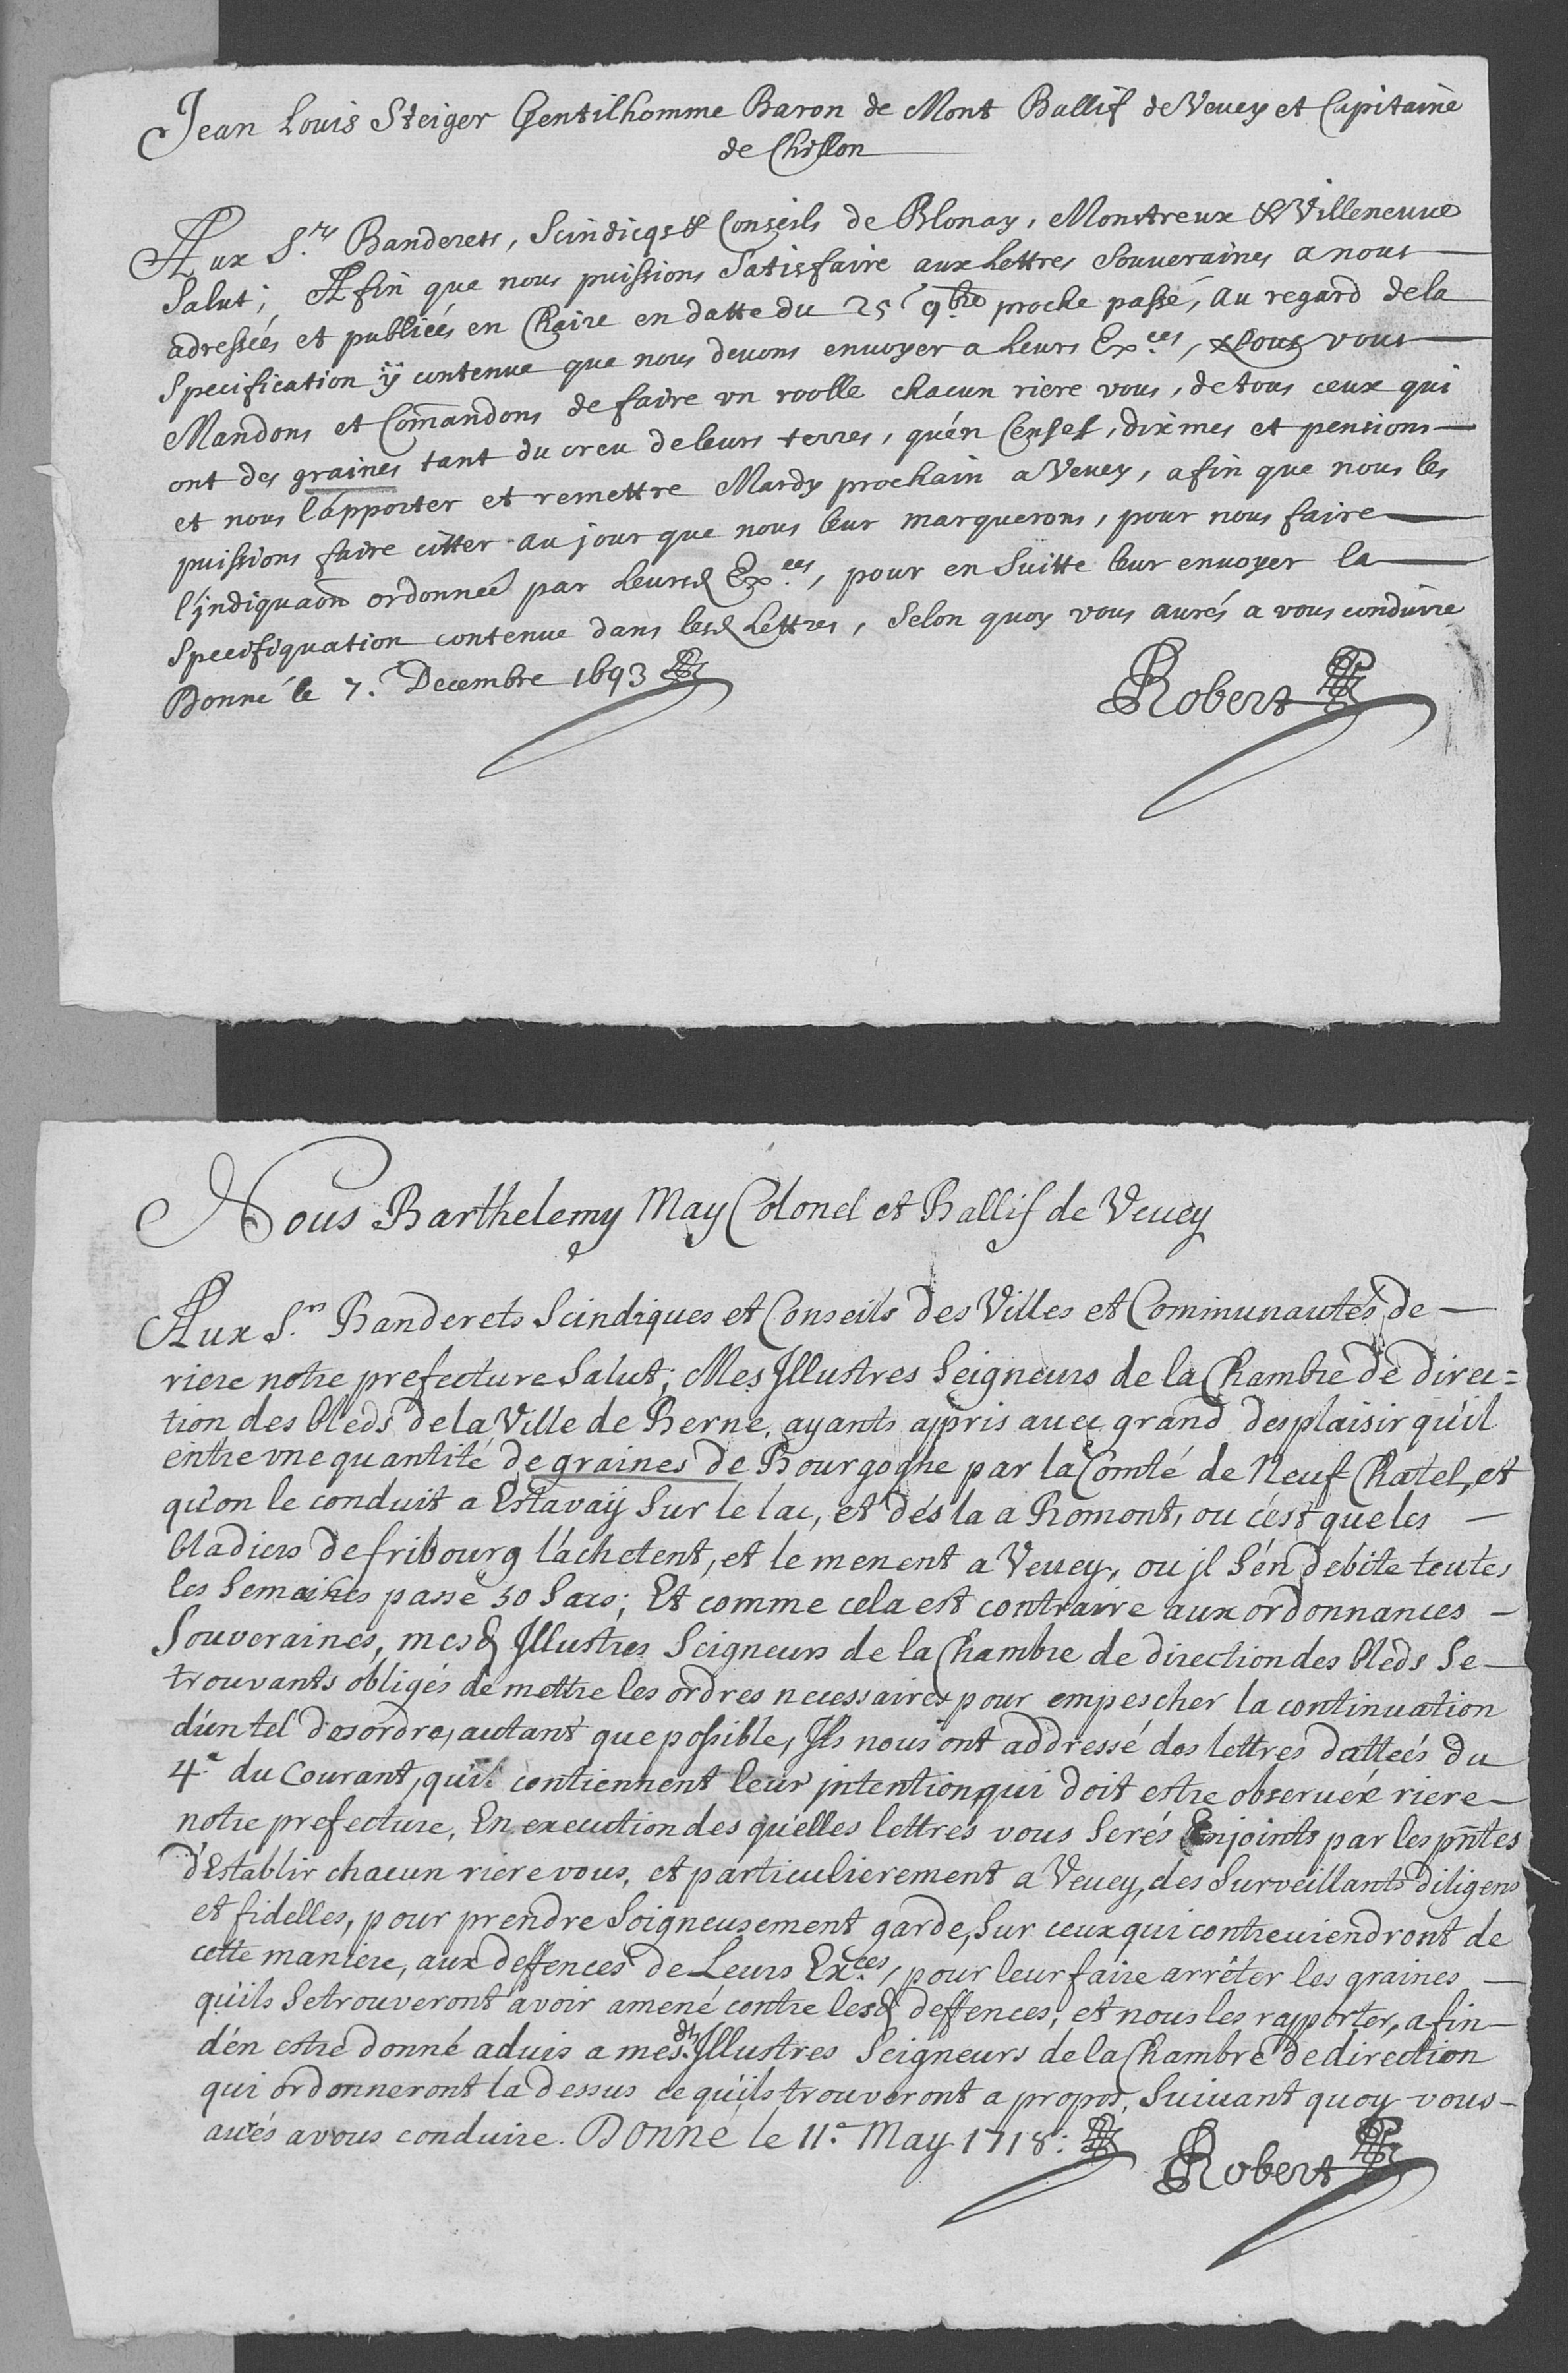 Jean Louis Steiger Gentilhomme Baron de Mont Ballif de Vevey et Capitaine
de Chillon
Aux S.rs Banderets, Scindicqs & Conseils de Blonay, Monstreux & Villeneuve
Salut; Afin que nous puissions Satisfaire aux Lettres Souveraines a nous
adressées et publiées en Chaire en datte du 25e 9.bre proche passé, au regard de la
Specification ÿ contenue que nous devons envoyer a Leurs Ex.ces, Nous vous
Mandons et Com̃andons de faire vn roolle chacun riere vous, de tous ceux qui
ont des graines tant du creu de leurs terres, qu'én Censes, dixmes et pensions
et nous l'apporter et remettre Mardy prochain a Vevey, afin que nous les
puissions faire citter au jour que nous leur marquerons, pour nous faire
l'jndiquaõn ordonneé par Leursd Ex.ces, pour en Suitte leur envoyer la
Specifiquation contenue dans lesd Lettres, Selon quoy vous aurés a vous conduire
Donné le 7.e Decembre 1693
Robert
Nous Barthelemy May Colonel et Ballif de Vevey
Aux S.rs Banderets Scindiques et Conseils des Villes et Communautés de
riere notre prefecture Salut; Mes Jllustres Seigneurs de la Chambre de direc=
tion des bleds de la Ville de Berne, ayants appris avec grand desplaisir qu'il
entre vne quantité de graines de Bourgogne par la Comté de Neuf Chatel, et
qu'on le conduit a Estavaÿ Sur le lac, et dés la a Romont, ou c'ést que les
bladiers de fribourg l'achetent, et le menent a Vevey, ou jl S'én debite toutes
les Semaines passe 50 Sacs; Et comme cela est contraire aux ordonnances
Souveraines, mesd Jllustres Seigneurs de la Chambre de direction des bleds Se
trouvants obligés de mettre les ordres necessaires pour empescher la continuation
d'un tel desordre, autant que possible, Jls nous ont addressé des lettres datteés du
4.e du Courant, qui contiennent leur jntention qui doit estre observeé riere
notre prefecture, En execution des qu'elles lettres vous Serés Enjoints par les pñtes
d'Establir chacun riere vous, et particulierement a Vevey, des Surveillants diligens
et fidelles, pour prendre Soigneusement garde, Sur ceux qui contreviendront de
cette maniere, aux deffences de Leurs Ex.ces, pour leur faire arrêter les graines
qu'ils Se trouveront avoir amené contre lesd deffences, et nous les rapporter, afin
d'én estre donné advis a mesdt. Jllustres Seigneurs de la Chambre de direction
qui ordonneront la dessus ce qu'ils trouveront a propos, Suivant quoy vous
aurés a vous conduire. Donné le 11.e May 1718:
Robert